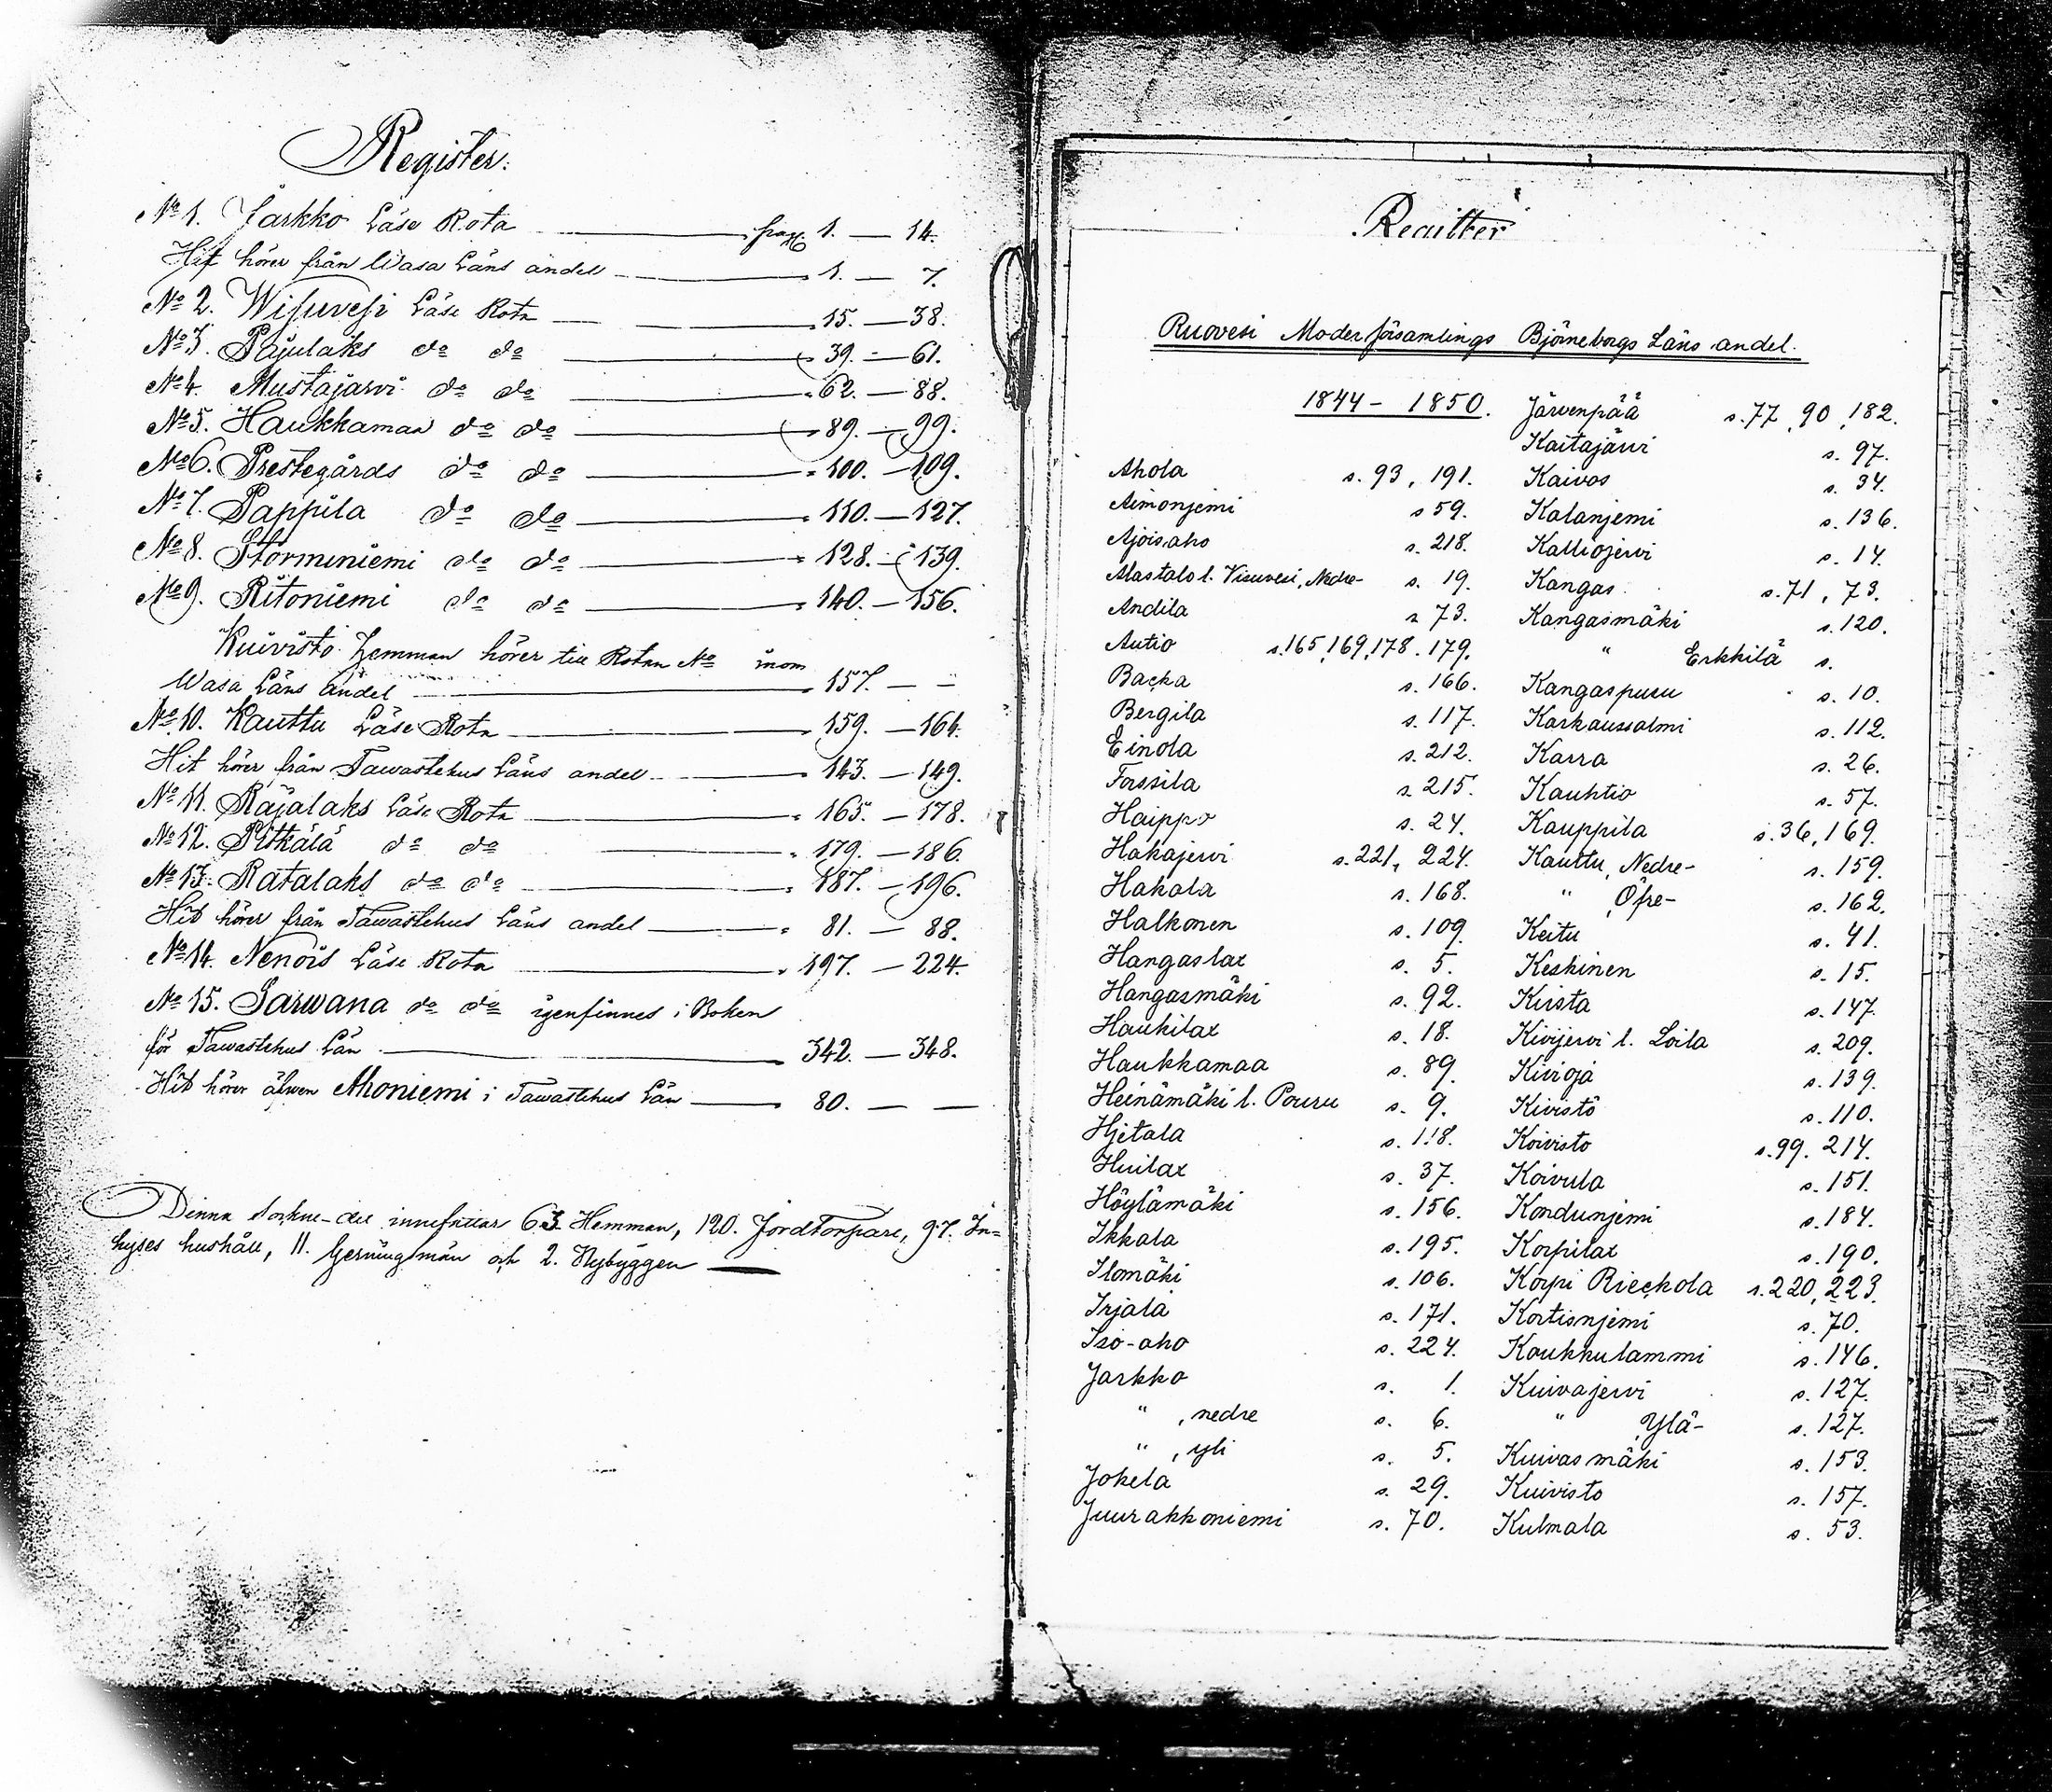 Register.
No 1. Jarkko Läse Rota pag. 1. — 14.
Hit hörer från Wasa Läns andel 1. — 7.
No 2. Wisuvesi Läse Rota 15. — 38.
No 3. Pajulaks do do 39. — 61.
No 4. Mustajarvi do do 62. — 88.
No 5. Haukkamaa do do 89. — 99.
No 6. Prestegårds do do 100. — 109.
No 7. Pappila do do 110. — 127.
No 8. Storminiemi do do 128. — 139.
No 9. Ritoniemi do do 140. — 156.
Kuivisto Hemman hörer till Rotan No inom
Wasa Läns andel 157. — —
No 10. Kauttu Läse Rota 159. — 164.
Hit hörer från Tawastehus Läns andel 143. — 149.
No 11. Rajalaks Läse Rota 165. — 178.
No 12. Pitkälä do do 179. — 186.
No 13. Ratalaks do do 187. — 196.
Hit hörer från Tawastehus Läns andel 81. — 88.
No 14. Nenois Läse Rota 197. — 224.
No 15. Sarwana do do igenfinnes i Boken
för Tawastehus Län 342. — 348.
Hit hörer äfwen Ahoniemi i Tawastehus Län 80. — —
Denna Sockne-del innefattar 63 Hemman, 120. Jordtorpare, 97. In=
hyses hushåll, 11. Gerningsmän och 2. Nybyggen
Register
Ruovesi Moderförsamlings Björneborgs Läns andel.
1844 - 1850.
Ahola s. 93, 191.
Aimonjemi s 59.
Ajoisaho s. 218.
Alastalo l. Visuvesi, Nedre- s. 19.
Andila s 73.
Autio s.165,169,178.179.
Backa s. 166.
Bergila s. 117.
Einola s. 212.
Forssila s. 215.
Haippo s. 24.
Hakajervi s. 221, 224.
Hakala s. 168.
Halkonen s. 109.
Hangaslax s. 5.
Hangasmäki s. 92.
Haukilax s. 18.
Haukkamaa s. 89.
Heinämäki l. Pouru s. 9.
Hjetala s. 118.
Huilax s. 37.
Höylämäki s. 156.
Ikkala s. 195.
Ilomäki s. 106.
Irjala s. 171.
Iso-aho s. 224.
Jarkko s. 1.
" , nedre s. 6.
" , yli s. 5.
Jokela s. 29.
Juurakkoniemi s. 70.
Järvenpää s. 77, 90, 182.
Kaitajärvi s. 97.
Kaivos s. 34.
Kalanjemi s. 136.
Kalliojervi s. 14.
Kangas s. 71, 73.
Kangasmäki s. 120.
" Erkkilä s.
Kangaspuru s. 10.
Karkaussalmi s. 112.
Karra s. 26.
Kauhtio s. 57.
Kauppila s. 36, 169.
Kauttu, Nedre- s. 159.
" , Öfre- s. 162.
Keitu s. 41.
Keskinen s. 15.
Kiista s. 147.
Kivijervi l. Loila s. 209.
Kivioja s. 139.
Kivistö s. 110.
Koivisto s. 99. 214.
Koivula s. 151.
Kondunjemi s. 184.
Korpilax s. 190.
Korpi Rieckola s. 220, 223.
Kortisnjemi s. 70.
Koukkulammi s. 146.
Kuivajervi s. 127.
" , Ylä- s. 127.
Kuivasmäki s. 153.
Kuivisto s. 157.
Kulmala s. 53.